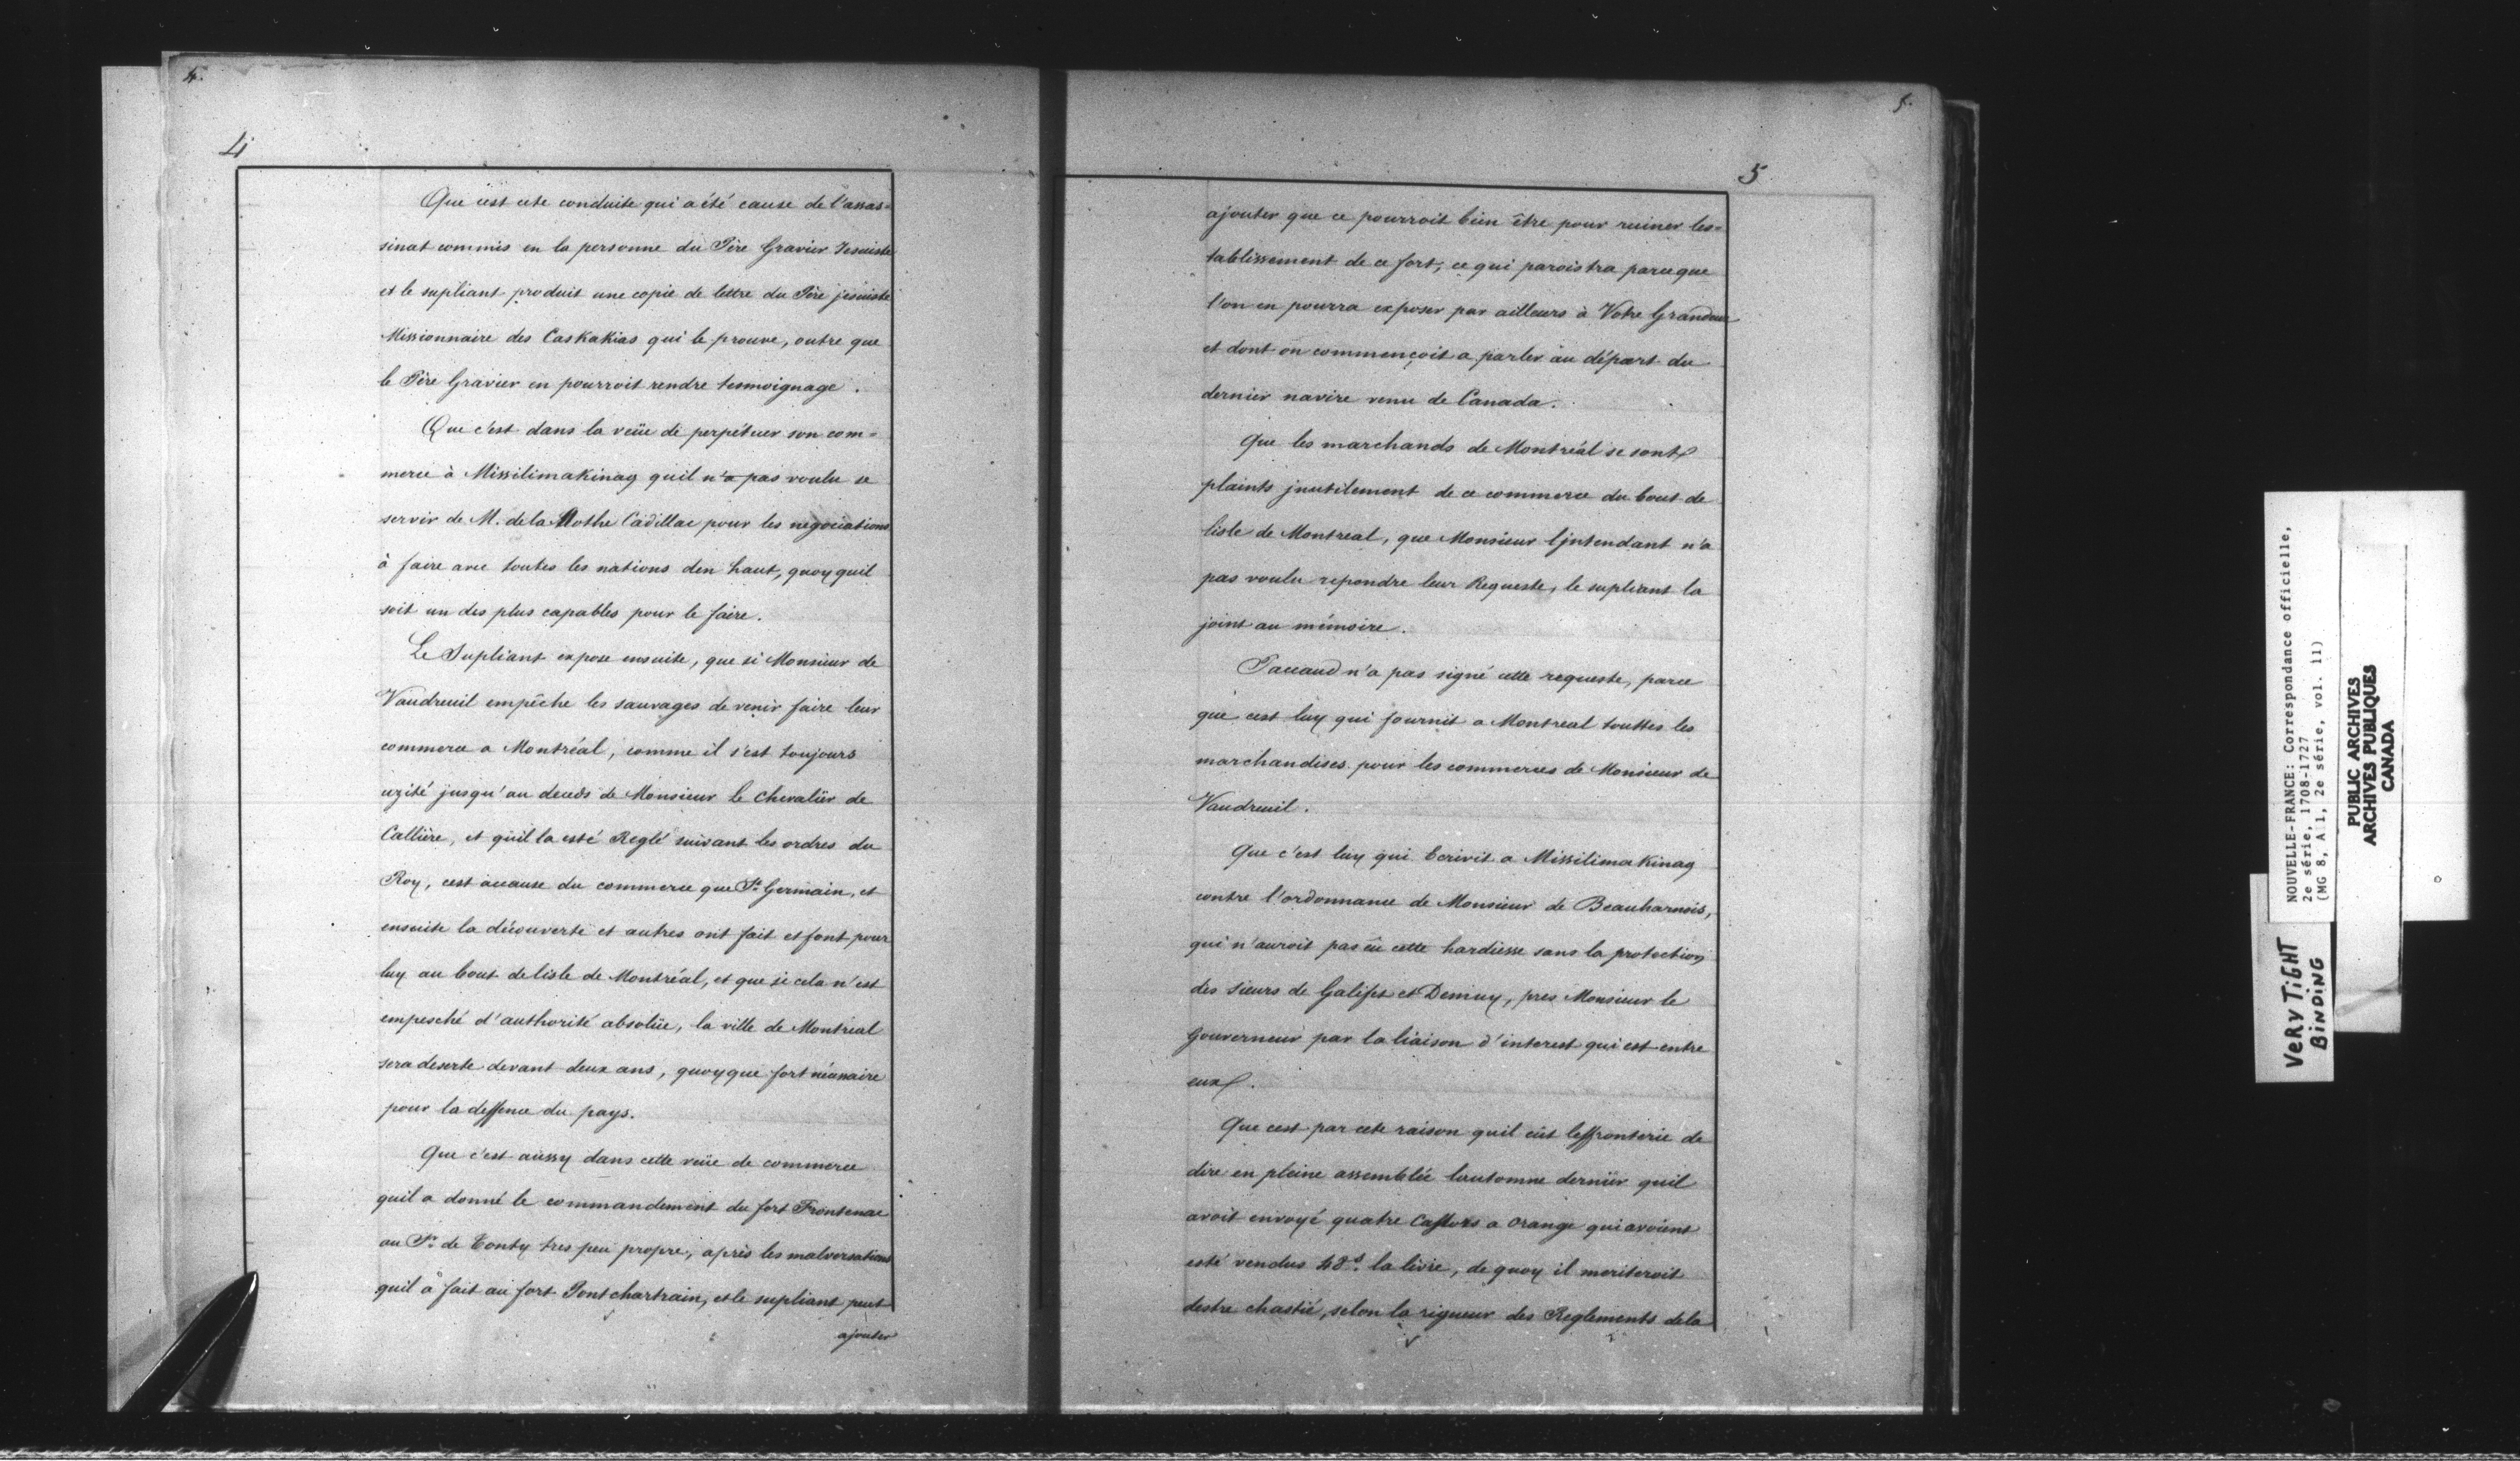 4.
4
Que c'est cete conduite qui a été cause de l'assas=
sinat commis en la personne du Père Gravier Jesuiste
et le supliant produit une copie de lettre du Père jesuiste
Missionnaire des Caskakias qui le prouve, outre que
le Père Gravier en pourroit rendre tesmoignage.
Que c'est dans la veüe de perpétuer son com=
merce à Missilimakinag quil n'a pas voulu se
servir de M. de la Mothe Cadillac pour les negociations
à faire avec toutes les nations den haut, quoy quil
soit un des plus capables pour le faire.
Le Supliant expose ensuite, que si Monsieur de
Vaudreuil empêche les sauvages de venir faire leur
commerce a Montréal, comme il s'est toujours
uzité jusqu'au deceds de Monsieur le Chevalier de
Callière, et quil la esté Reglé suivant les ordres du
Roy, cest acause du commerce que St. Germain, et
ensuite la découverte et autres ont fait et font pour
luy au bout de lisle de Montréal, et que si cela n'est
empesché d'authorité absolüe, la ville de Montreal
sera deserte devant deux ans, quoyque fort nécessaire
pour la deffence du pays.
Que c'est aussy dans cette veüe de commerce
quil a donné le commandement du fort Frontenac
au Sr. de Tonty tres peu propre, après les malversations
quil à fait au fort Pontchartrain, et le supliant peut
ajouter
5.
5
ajouter que ce pourroit bien être pour ruiner les=
tablissement de ce fort, ce qui paroistra parceque
l'on en pourra exposer par ailleurs à Votre Grandeur
et dont on commençoit a parler au départ du
dernier navire venu de Canada.
Que les marchands de Montréal se sont
plaints jnutilement de ce commerce du bout de
lisle de Montreal, que Monsieur ljntendant n'a
pas voulu repondre leur Requeste, le supliant la
joint au mémoire.
Pacaud n'a pas signé cette requeste, parce
que cest luy qui fournit a Montreal touttes les
marchandises pour les commerces de Monsieur de
Vaudreuil.
Que c'est luy qui Ecrivit a Missilimakinag
contre l'ordonnance de Monsieur de Beauharnois,
qui n'auroit pas eu cette hardiesse sans la protection
des sieurs de Galifet et Demuy, pres Monsieur le
Gouverneur par la liaison d'interest qui est entre
eux.
Que cest par cete raison quil eût leffronterie de
dire en pleine assemblée lautomne dernier quil
avoit envoyé quatre Castors a Orange qui avoient
esté vendus 48s. la livre, de quoy il meriteroit
destre chastié, selon la rigueur des Reglements de la
NOUVELLE-FRANCE: Correspondance officielle,
2e série, 1708-1727
(MG 8, A 1, 2e série, vol. 11)
PUBLIC ARCHIVES
ARCHIVES PUBLIQUES
CANADA
VERY TiGHT
BiNDiNG